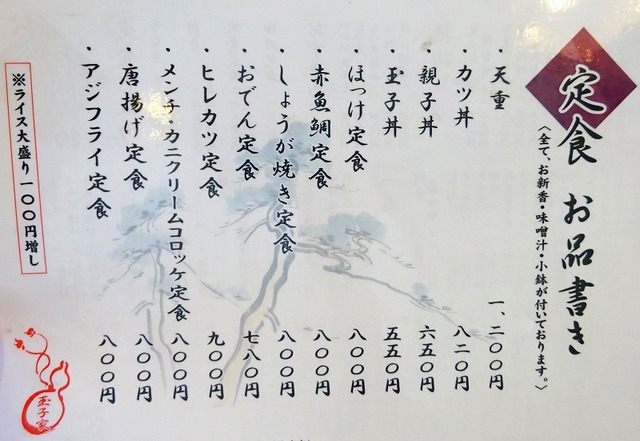 定食 お品書き
〈全て、お新香・味噌汁・小鉢が付いております。〉
・天重 一、二〇〇円
・カツ丼 八二〇円
・親子丼 六五〇円
・玉子丼 五五〇円
・ほっけ定食 八〇〇円
・赤魚鯛定食 八〇〇円
・しょうが焼き定食 八〇〇円
・おでん定食 七八〇円
・ヒレカツ定食 九〇〇円
・メンチ・カニクリームコロッケ定食 八〇〇円
・唐揚げ定食 八〇〇円
・アジフライ定食 八〇〇円
※ライス大盛り一〇〇円増し
玉子家